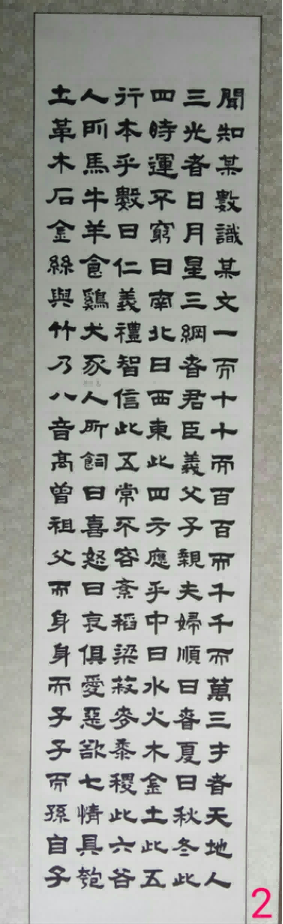 聞知某數識某文一而十十而百百而千千而萬三才者天地人
三光者日月星三綱者君臣義父子親夫婦順曰春夏曰秋冬此
四時運不窮曰南北曰西東此四方應乎中曰水火木金土此五
行本乎數曰仁義禮智信此五常不容紊稻粱菽麥黍稷此六谷
人所馬牛羊食鷄犬豕人所飼曰喜怒曰哀俱愛惡欲七情具匏
土革木石金絲與竹乃八音高曾祖父而身身而子子而孫自子
2